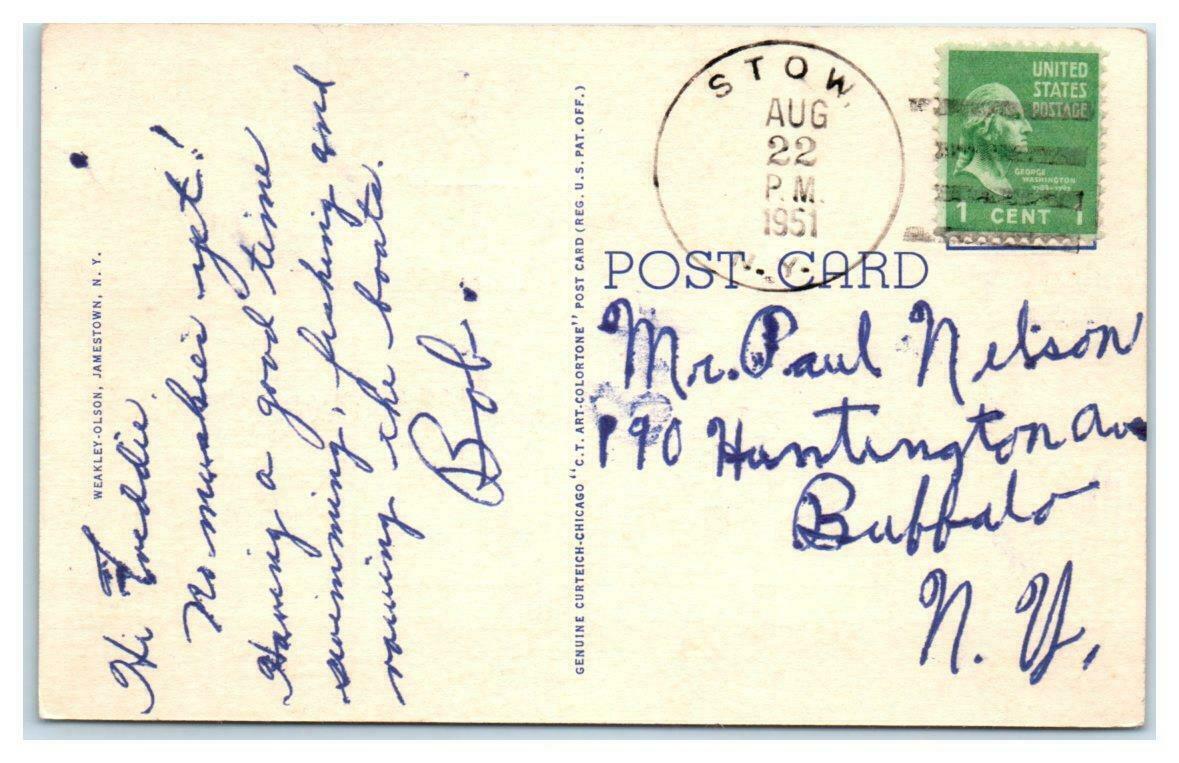 WEAKLEY-OLSON, JAMESTOWN, N. Y.
Hi Freddie.
No muskies yet!
Having a good time
swimming, fishing and
rowing the boats.
Bob.
GENUINE CURTEICH-CHICAGO "C.T. ART-COLORTONE" POST CARD (REG. U.S. PAT. OFF.)
STOW,
AUG
22
P.M.
1951
N.Y.
UNITED
STATES
POSTAGE
GEORGE
WASHINGTON
1 CENT 1
POST CARD
Mr. Paul Nelson
190 Huntington Ave
Buffalo
N. Y.